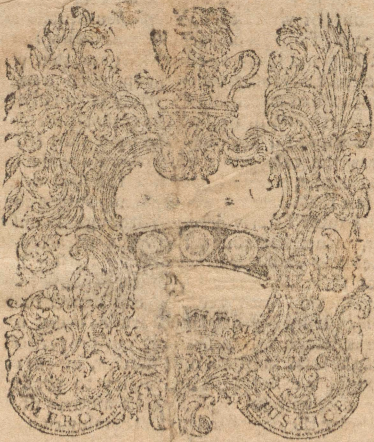 MERCY
JUSTICE